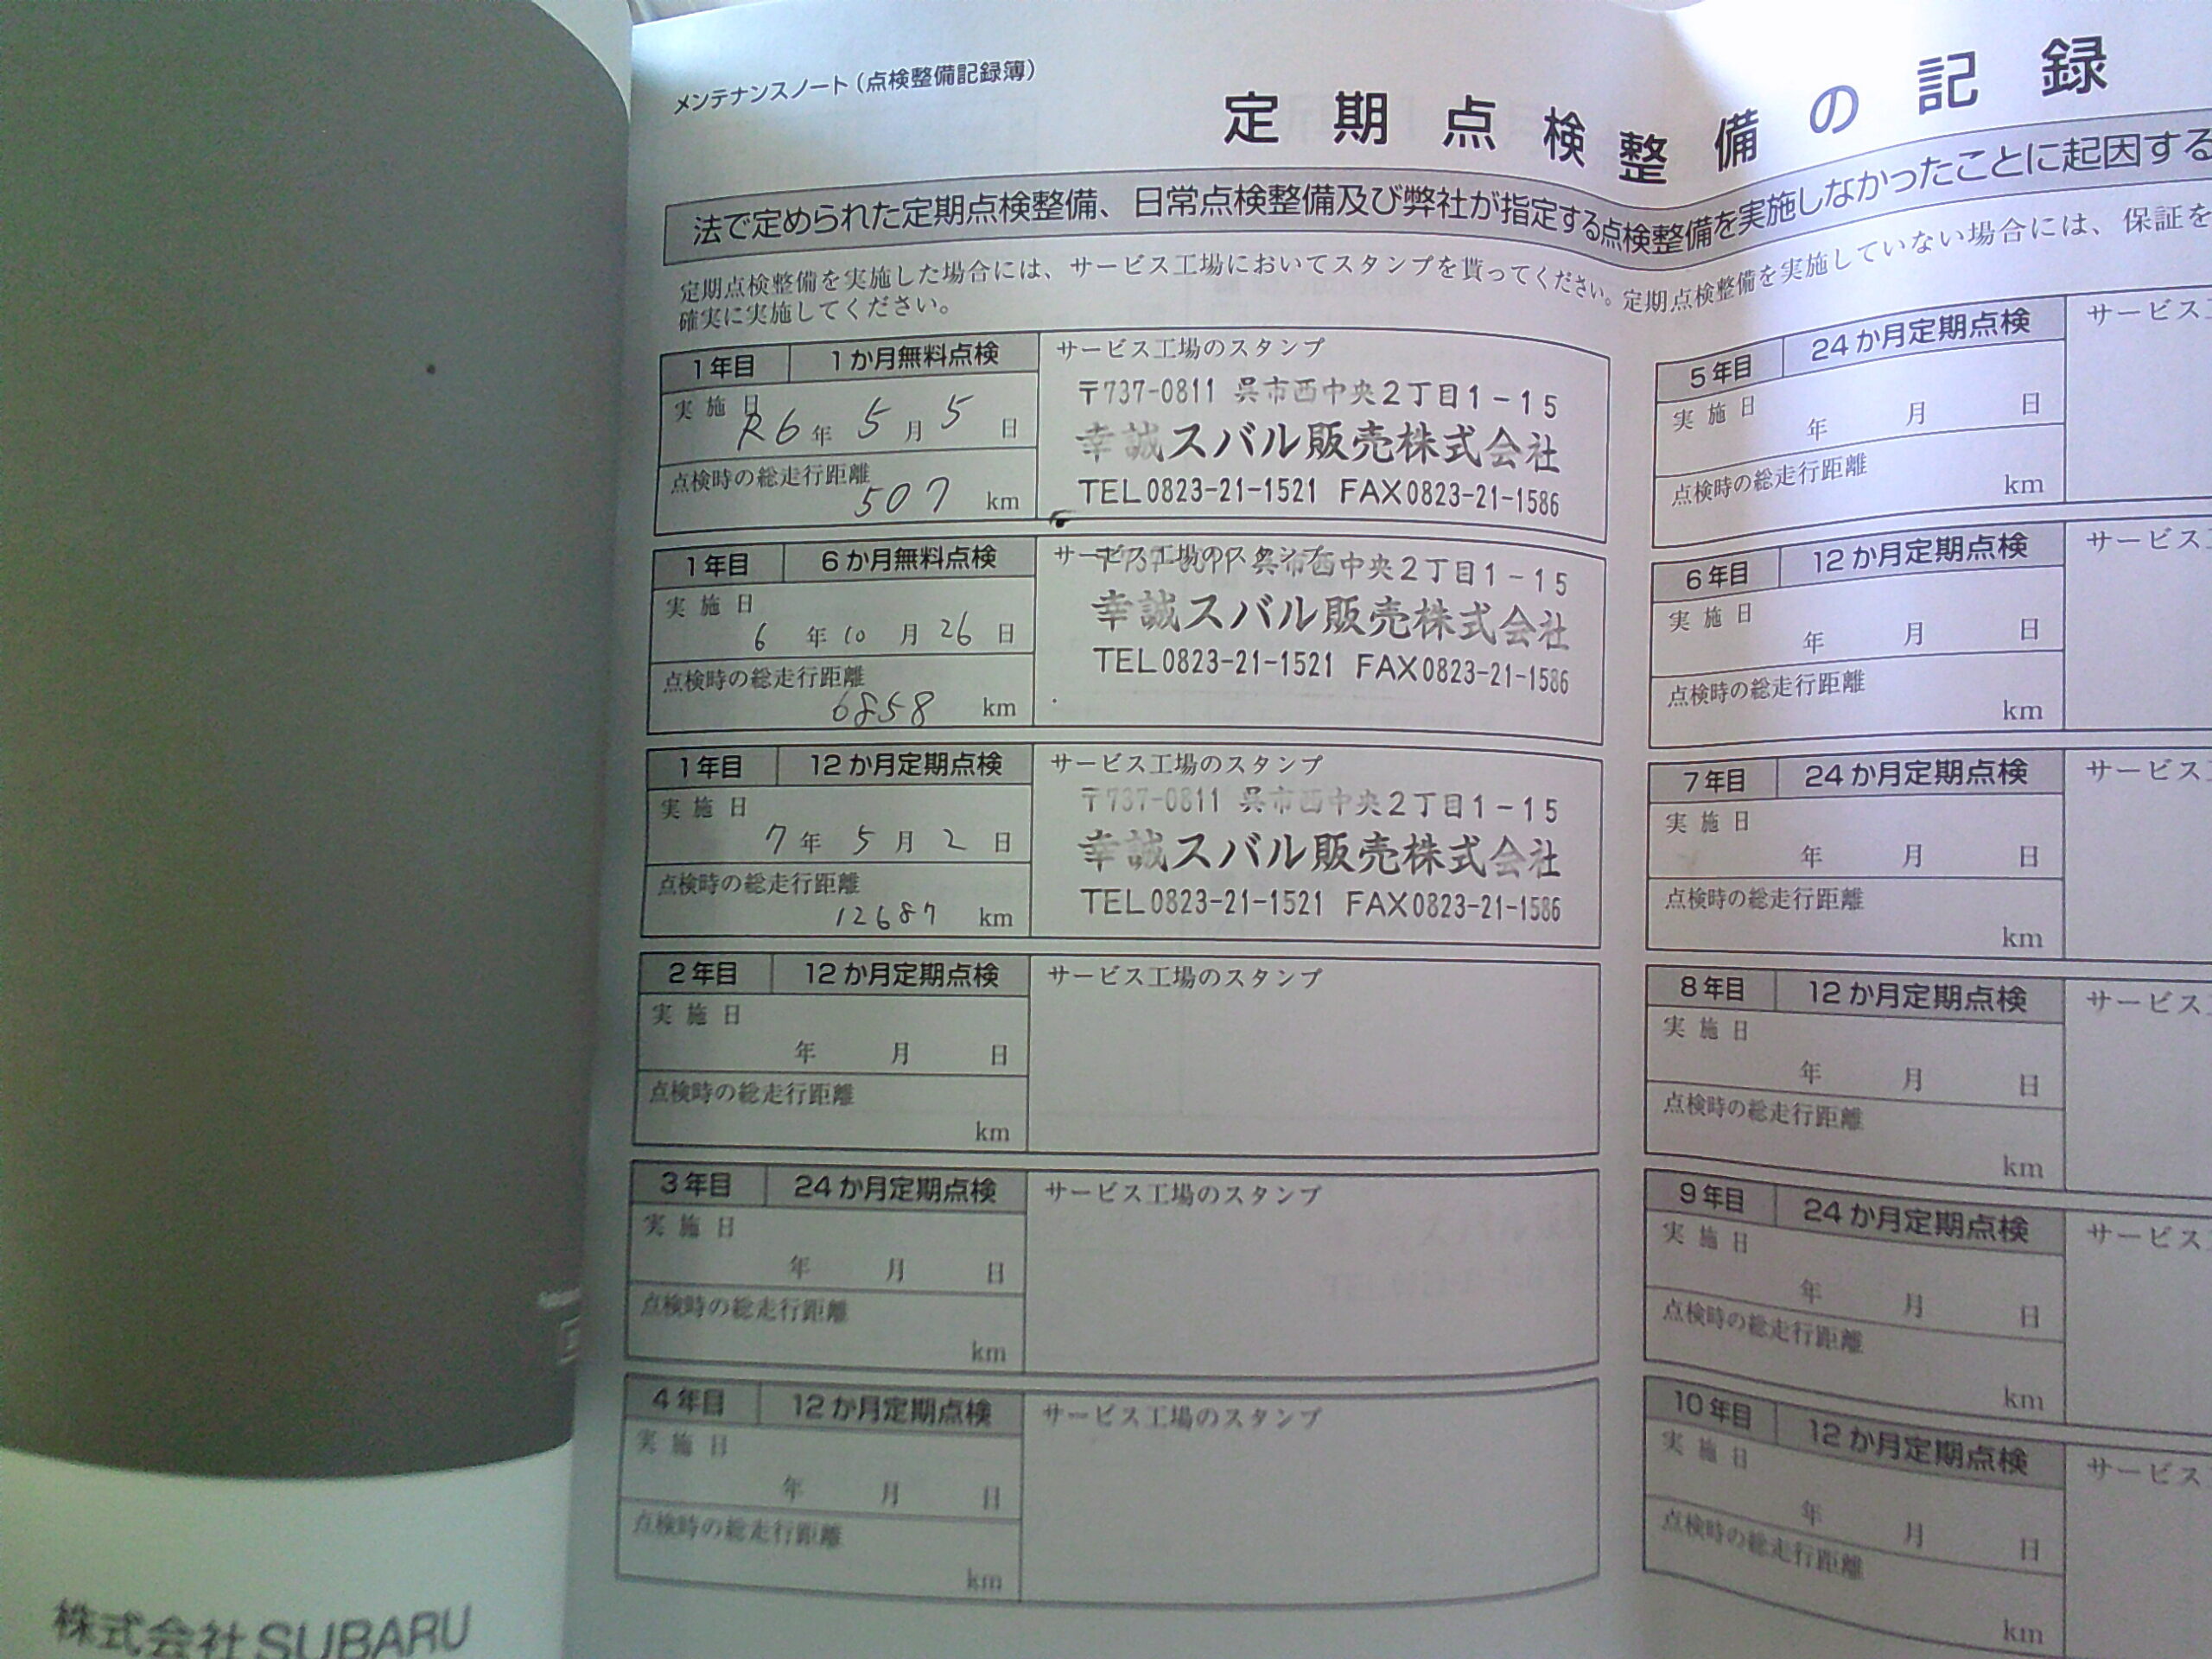 メンテナンスノート（点検整備記録簿）
定期点検整備の記録
法で定められた定期点検整備、日常点検整備及び弊社が指定する点検整備を実施しなかったことに起因する
定期点検整備を実施した場合には、サービス工場においてスタンプを貰ってください。定期点検整備を実施していない場合には、保証を
確実に実施してください。
1年目 1か月無料点検
実施日
R6年 5月 5日
点検時の総走行距離
507 km
サービス工場のスタンプ
〒737-0811 呉市西中央2丁目1-15
幸誠スバル販売株式会社
TEL0823-21-1521 FAX0823-21-1586
1年目 6か月無料点検
実施日
6年 10月 26日
点検時の総走行距離
6858 km
サービス工場のスタンプ
〒737-0811 呉市西中央2丁目1-15
幸誠スバル販売株式会社
TEL0823-21-1521 FAX0823-21-1586
1年目 12か月定期点検
実施日
7年 5月 2日
点検時の総走行距離
12687 km
サービス工場のスタンプ
〒737-0811 呉市西中央2丁目1-15
幸誠スバル販売株式会社
TEL0823-21-1521 FAX0823-21-1586
2年目 12か月定期点検
実施日
年 月 日
点検時の総走行距離
km
サービス工場のスタンプ
3年目 24か月定期点検
実施日
年 月 日
点検時の総走行距離
km
サービス工場のスタンプ
4年目 12か月定期点検
実施日
年 月 日
点検時の総走行距離
km
サービス工場のスタンプ
5年目 24か月定期点検
実施日
年 月 日
点検時の総走行距離
km
サービス
6年目 12か月定期点検
実施日
年 月 日
点検時の総走行距離
km
サービス
7年目 24か月定期点検
実施日
年 月 日
点検時の総走行距離
km
サービス
8年目 12か月定期点検
実施日
年 月 日
点検時の総走行距離
km
サービス
9年目 24か月定期点検
実施日
年 月 日
点検時の総走行距離
km
サービス
10年目 12か月定期点検
実施日
年 月 日
点検時の総走行距離
km
サービス
株式会社SUBARU